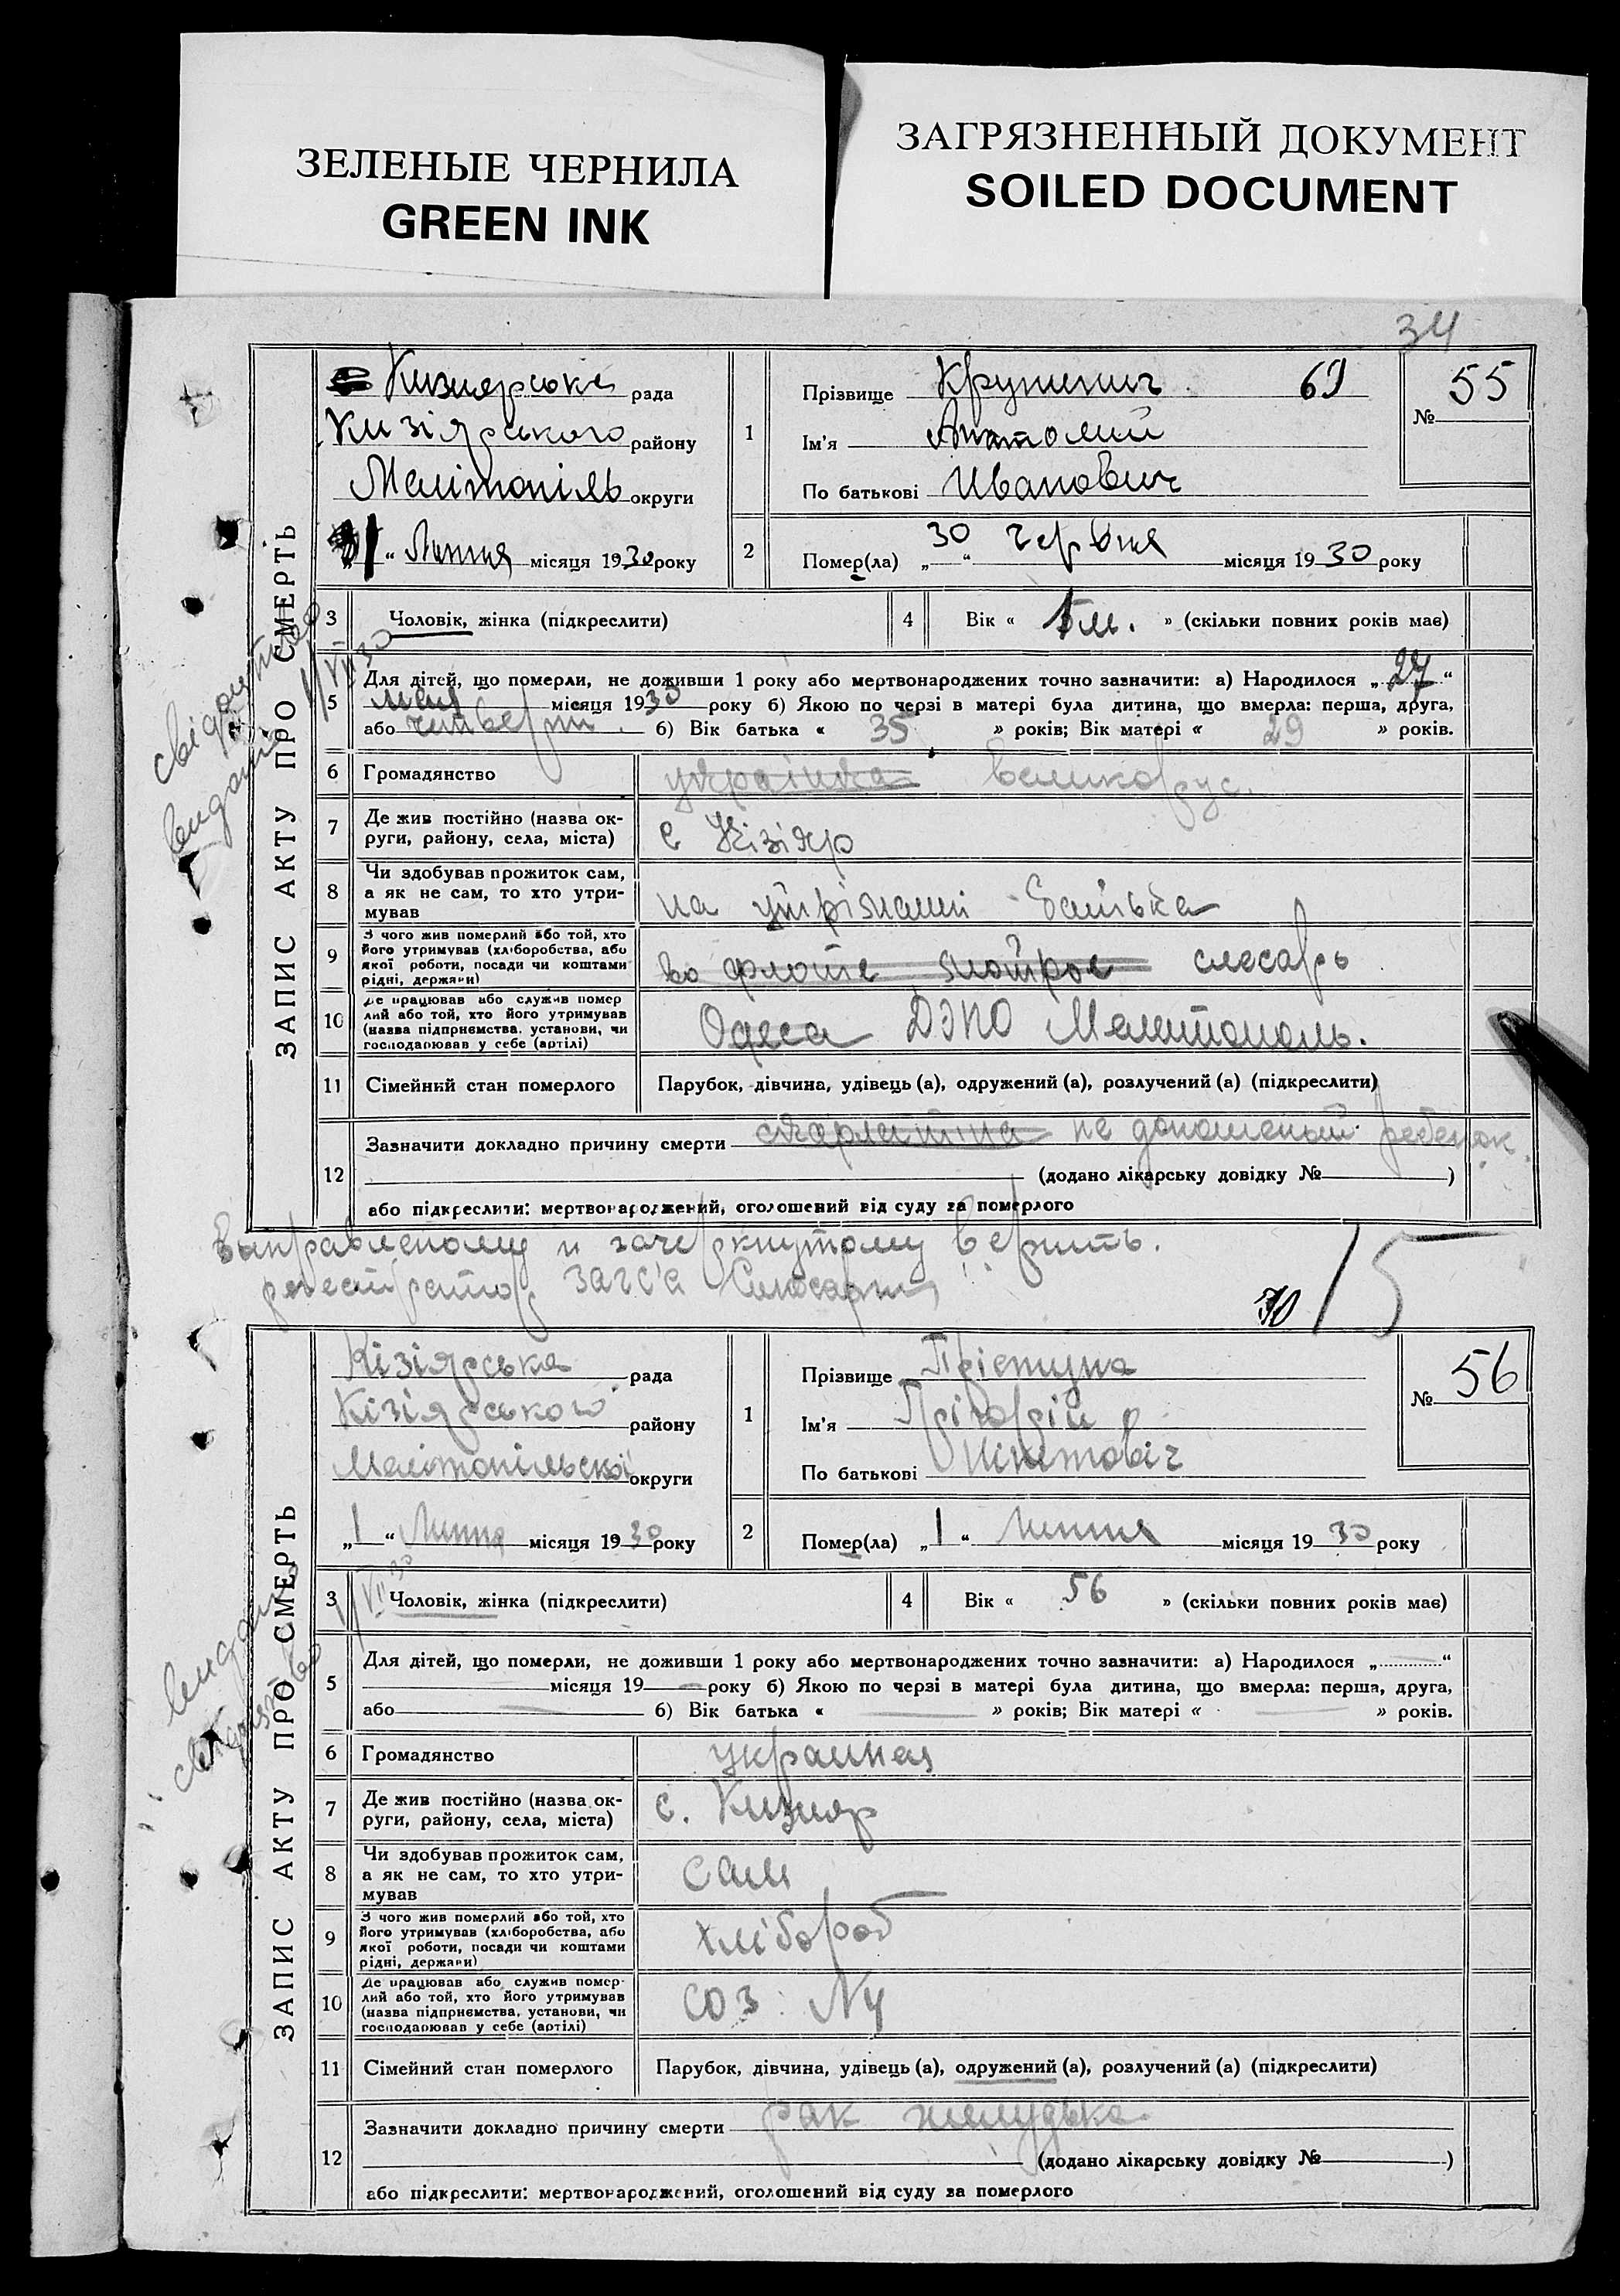 ЗЕЛЕНЫЕ ЧЕРНИЛА
GREEN INK
ЗАГРЯЗНЕННЫЙ ДОКУМЕНТ
SOILED DOCUMENT
34
ЗАПИС АКТУ ПРО СМЕРТЬ
Кизиярська рада
Кизіярського району
Мелітопіль округи
1 " Липня місяця 1930 року
1 Прізвище Крупинич 69
Ім'я Анатолий
По батькові Иванович
№ 55
2 Помер(ла) „30 " червня місяця 1930 року
3 Чоловік, жінка (підкреслити)
4 Вік « 1 м. » (скільки повних років має)
5 Для дітей, що померли, не доживши 1 року або мертвонароджених точно зазначити: а) Народилося „ 27 "
мая місяця 1930 року б) Якою по черзі в матері була дитина, що вмерла: перша, друга,
або четверти б) Вік батька « 35 » років; Вік матері « 29 » років.
6 Громадянство українка великорус.
7 Де жив постійно (назва округи, району, села, міста) с Кізіяр
8 Чи здобував прожиток сам, а як не сам, то хто утримував на утрімании батька
9 З чого жив померлий або той, хто його утримував (хліборобства, або якої роботи, посади чи коштами рідні, держави) во флоте слесарь
10 Де працював або служив померлий або той, хто його утримував (назва підприємства, установи, чи господарював у себе (артілі) Одеса ДЭПО Мелитополь.
11 Сімейний стан померлого Парубок, дівчина, удівець (а), одружений (а), розлучений (а) (підкреслити)
12 Зазначити докладно причину смерти скарлатина не доношеный ребенок.
(додано лікарську довідку № )
або підкреслити: мертвонароджений, оголошений від суду за померлого
свідоцтво видано 1/VII 30
Виправленому и зачеркнутому верить.
регестратор ЗАГС'а
70 15
ЗАПИС АКТУ ПРО СМЕРТЬ
Кізіярська рада
Кізіярського району
Мелітопільської округи
„1 " Липня місяця 1930 року
1 Прізвище Пріступа
Ім'я Грігорій
По батькові Нікітовіч
№ 56
2 Помер(ла) „1 " липня місяця 1930 року
3 Чоловік, жінка (підкреслити)
4 Вік « 56 » (скільки повних років має)
5 Для дітей, що померли, не доживши 1 року або мертвонароджених точно зазначити: а) Народилося „ "
місяця 19 року б) Якою по черзі в матері була дитина, що вмерла: перша, друга,
або б) Вік батька « » років; Вік матері « » років.
6 Громадянство
7 Де жив постійно (назва округи, району, села, міста) с. Кизияр
8 Чи здобував прожиток сам, а як не сам, то хто утримував сам
9 З чого жив померлий або той, хто його утримував (хліборобства, або якої роботи, посади чи коштами рідні, держави) хлібороб
10 Де працював або служив померлий або той, хто його утримував (назва підприємства, установи, чи господарював у себе (артілі) СОЗ N4
11 Сімейний стан померлого Парубок, дівчина, удівець (а), одружений (а), розлучений (а) (підкреслити)
12 Зазначити докладно причину смерти рак желудька
(додано лікарську довідку № )
або підкреслити: мертвонароджений, оголошений від суду за померлого
видано свідоцтво 1/VII 30